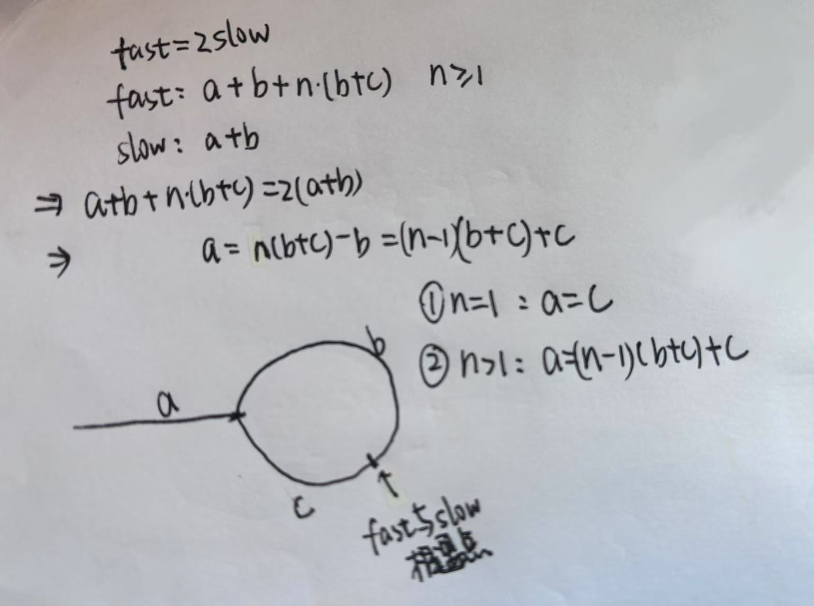 fast=2slow
fast: a+b+n·(b+c) n≥1
slow: a+b
⇒ a+b+n·(b+c)=2(a+b)
⇒ a= n(b+c)-b =(n-1)(b+c)+c
①n=1 : a=c
②n>1: a=(n-1)(b+c)+c
b
a
c
fast与slow
相